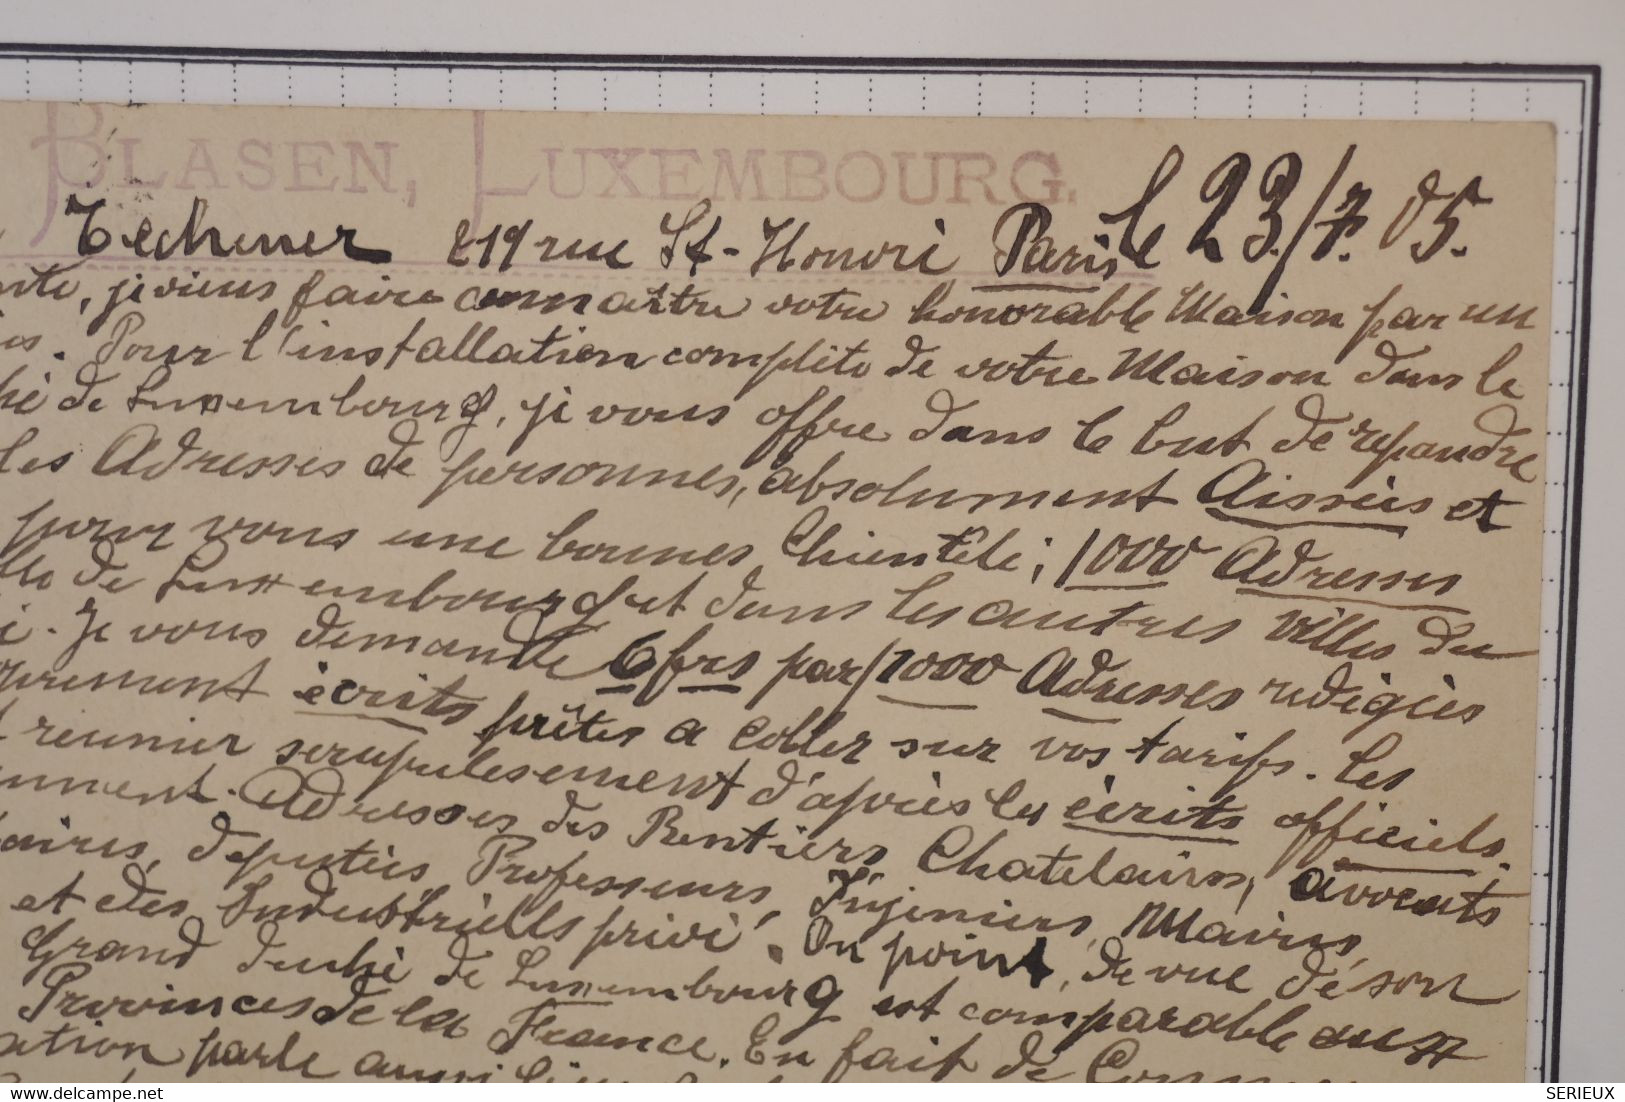 BLASEN, LUXEMBOURG.
le 23./7. 05.
Techener 219 rue St-Honori Paris
, je viens faire connaître votre honorable Maison par un
. Pour l'installation complète de votre Maison dans le
hé de Luxembourg, je vous offre dans le but de repandre
les Adresses de personnes, absolument Aisseés et
pour vous une bonnes Chientèle; 1000 Adresses
de Luxembourg et dans les autres villes du
. Je vous demande 6 frs par/1000 Adresses redigées
écrits prêtes a coller sur vos tarifs. Les
reunier serupulesement d'après les écrits officiels.
. Adresses des Rentiers Chatelains, avocats
aires, deputiés Professeurs, Injeniers, Maires,
et des Industriells privé. On point, de vue dé son
Grand duché de Luxembourg est comparable aux
Provinces de la France. En fait de
ation parle aussi
delcampe.net
SERIEUX